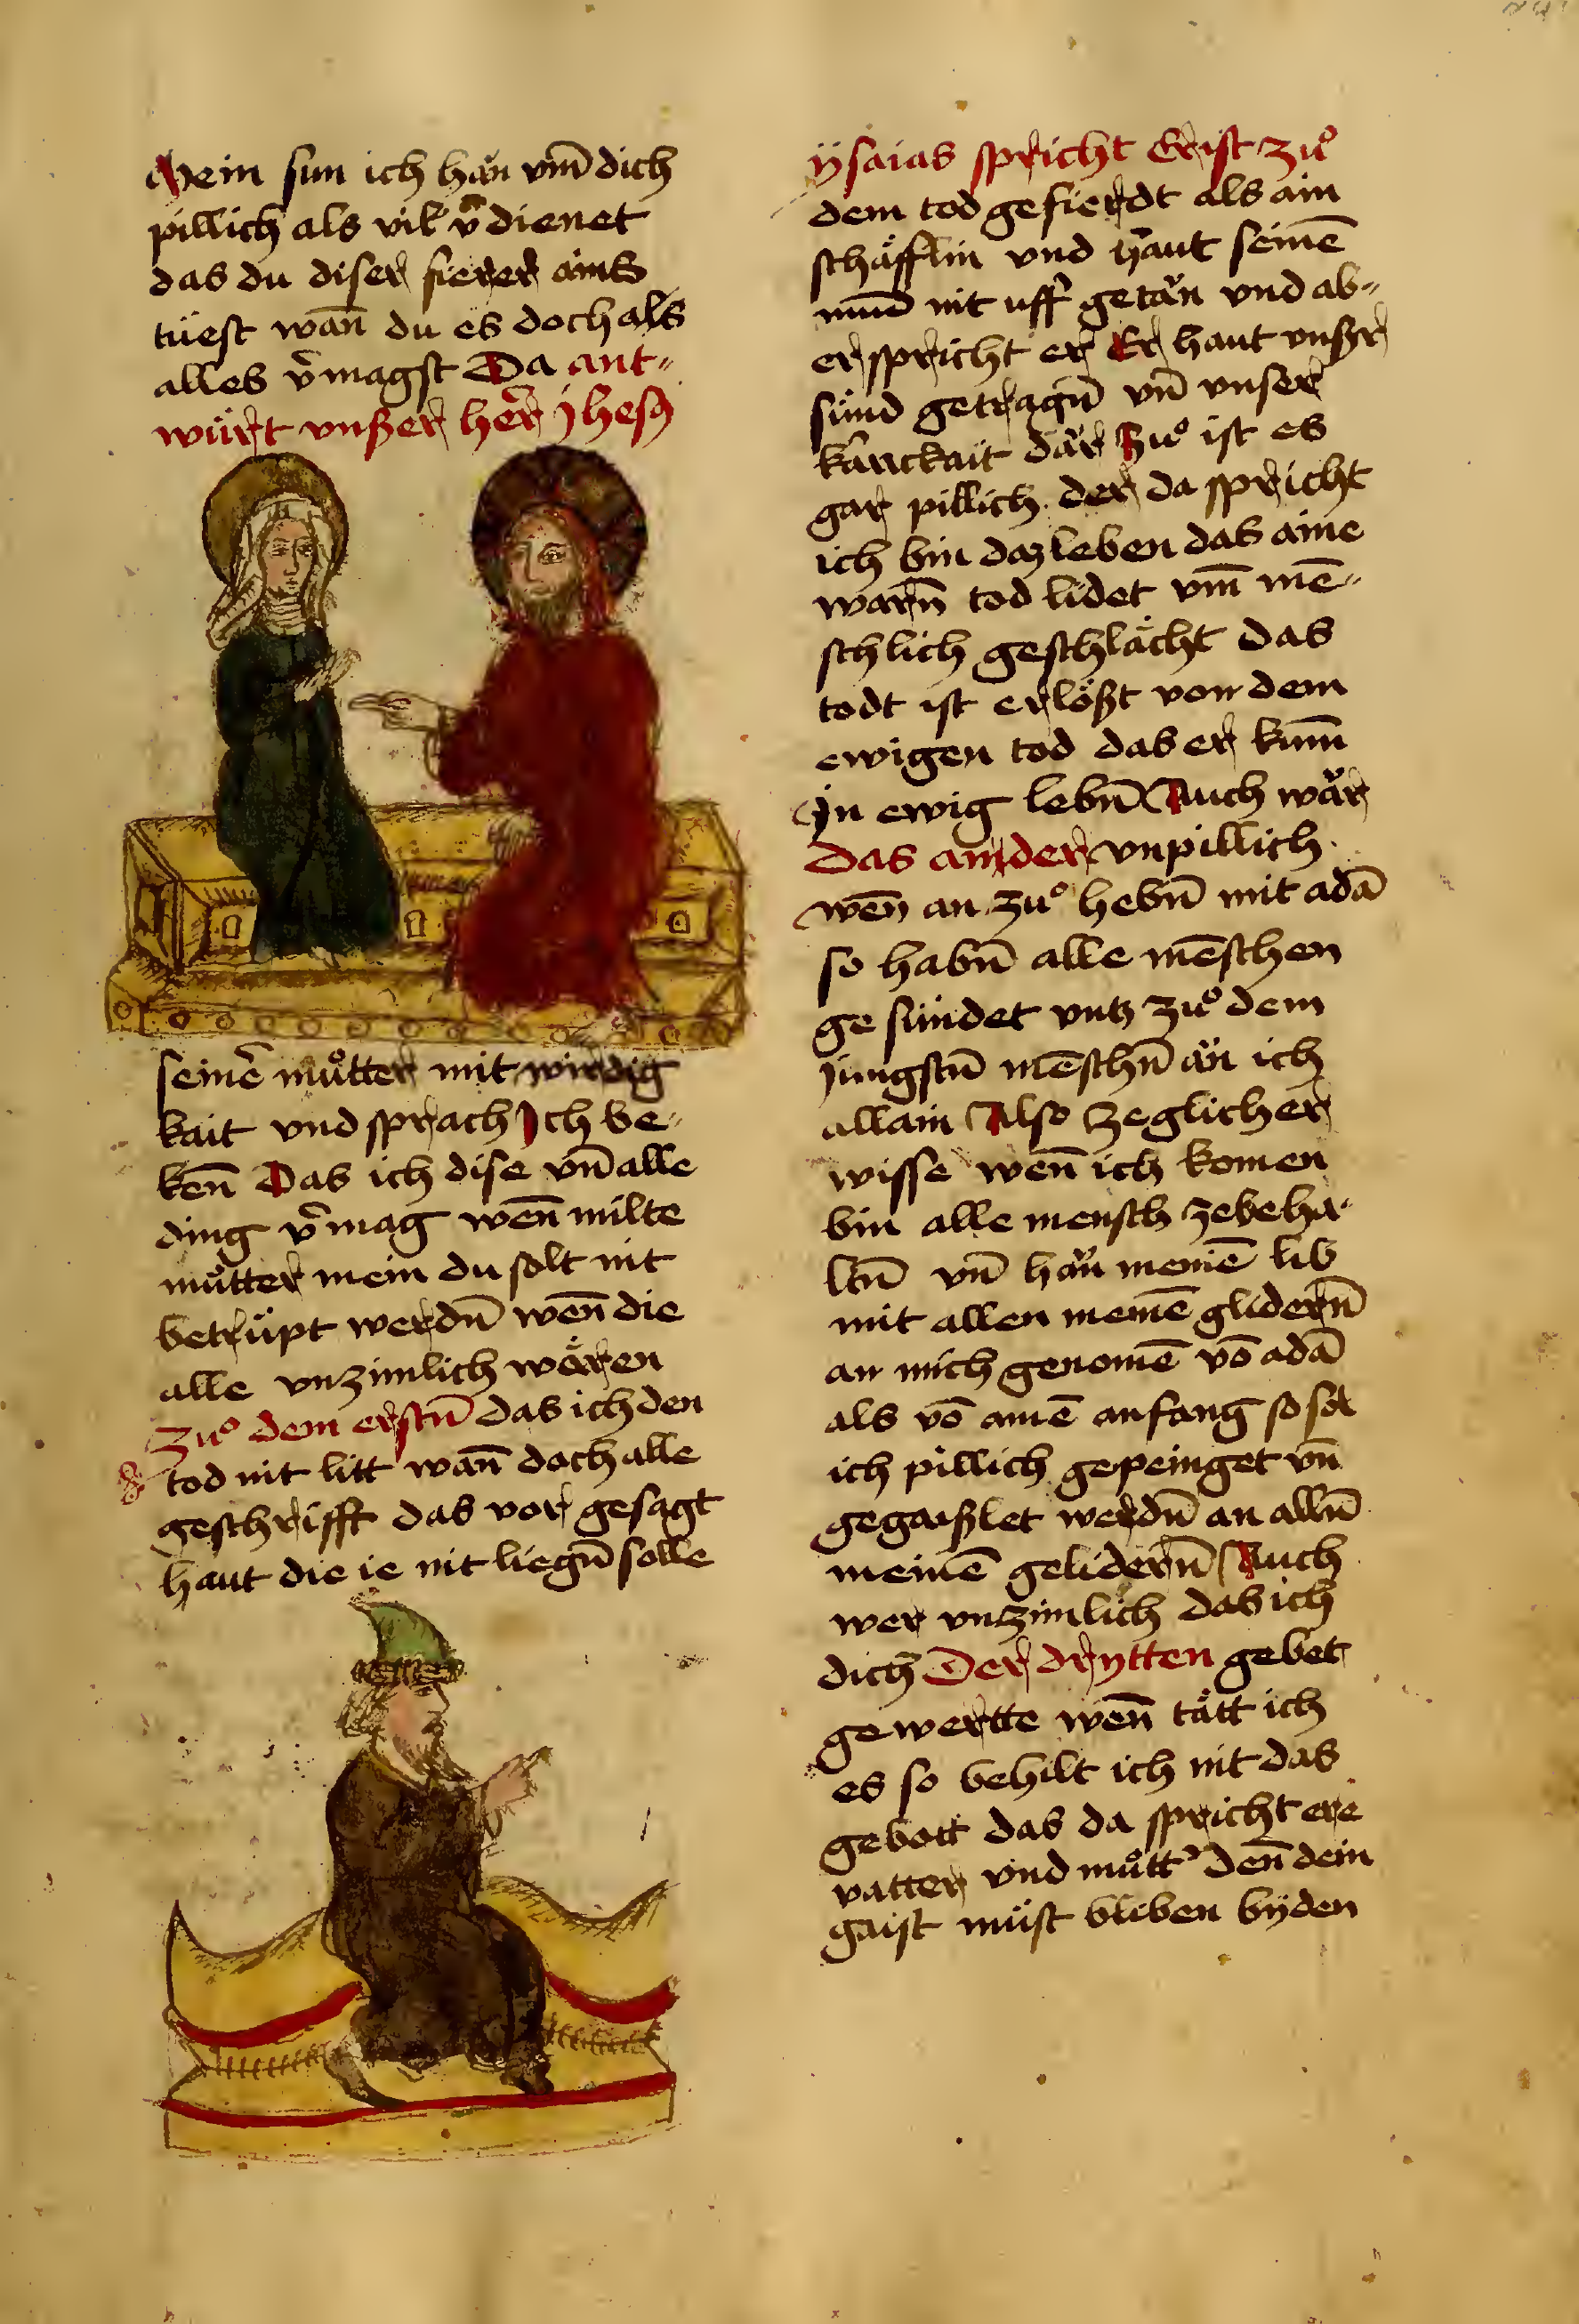 Mein sun ich hän vm̄ dich
pillich als vil v̄dienet
das du diser fierer ains
tüest wan̄ du es doch als
alles v̄magst Da ant„
würt vnßer her̄ jhesꝯ
seinē muͦtter mit wirdig
kait vnd sprach Ich be„
ken̄ Das ich dise vn̄ alle
ding v̄mag wen̄ milte
muͦtter mein du solt nit
betrüpt werdn̄ wen̄ die
alle vnzimlich wären
Zuͦ dem erstn̄ das ich den
tod nit litt wan̄ doch alle
geschrifft das vor gesagt
haut die ie nit liegn̄ solle
ÿsaias spricht Er ist zuͦ
dem tod gefierdt als ain
schäfflin vnd haut seinē
mūd nit uff getän vnd ab„
er spricht er Er haut vnßer
sünd getragn̄ vn̄ vnser
kranckait där zuͦ ist es
gar pillich der da spricht
ich bin daz leben das aine
warn̄ tod lidet vm̄ mē„
schlich geschlächt das
todt ist erlößt von dem
ewigen tod das er kum̄
In ewig lebn̄ Auch wär
Das annder vnpillich
wen̄ an zuͦ hebn̄ mit adā
so habn̄ alle mēschen
gesündet vntz zuͦ dem
jungstn̄ mēschn̄ än ich
allain Also zeglicher
wisse wen̄ ich komen
bin alle mensch zebeha„
ltn̄ vn̄ hän meinē lib
mit allen meinē glidern̄
an mich genomē vō adā
als vō ainē anfang so sol
ich pillich gepeinget vn̄
gegaißlet werdn̄ an alln̄
meinē gelidern̄ Auch
wer vnzimlich das ich
dich Der drytten gebet
gewertte wen̄ tätt ich
es so behilt ich nit das
gebott das da spricht ere
vatter vnd muͦtt' den̄ dein
gaist müst bliben bÿ den